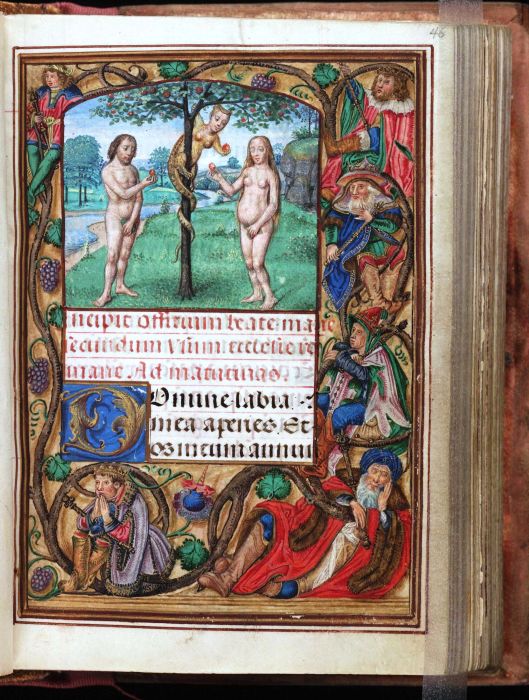 46
Incipit officium beate marie
secundum usum ecclesie ro
mane. Ad matutinas.
Domine labia
mea aperies. Et
os meum annun